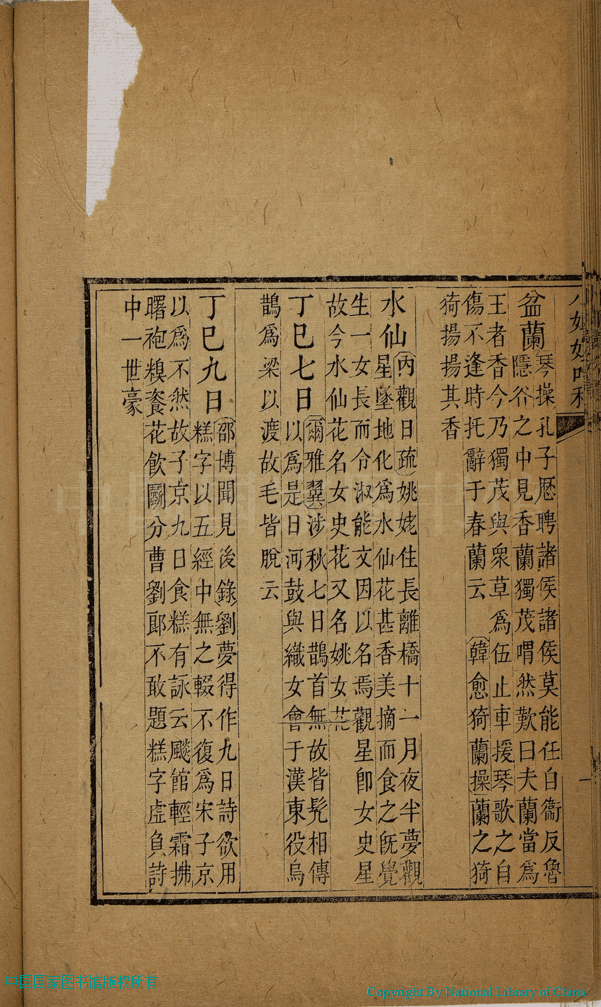 盆蘭 琴操孔子歷聘諸侯諸侯莫能任自衞反魯
隱谷之中見香蘭獨茂喟然歎曰夫蘭當爲
王者香今乃獨茂與衆草爲伍止車援琴歌之自
傷不逢時托辭于春蘭云 韓愈猗蘭操蘭之猗
猗揚揚其香
水仙 內觀日疏姚姥住長離橋十一月夜半夢觀
星墜地化爲水仙花甚香美摘而食之旣覺
生一女長而令淑能文因以名焉觀星卽女史星
故今水仙花名女史花又名姚女花
丁巳七日 爾雅翼涉秋七日鵲首無故皆髡相傳
以爲是日河鼓與織女會于漢東役烏
鵲爲梁以渡故毛皆脫云
丁巳九日 邵博聞見後錄劉夢得作九日詩欲用
糕字以五經中無之輟不復爲宋子京
以爲不然故子京九日食糕有詠云飈館輕霜拂
曙袍糗餈花飲鬭分曹劉郎不敢題糕字虛負詩
中一世豪
Copyright By National Library of China